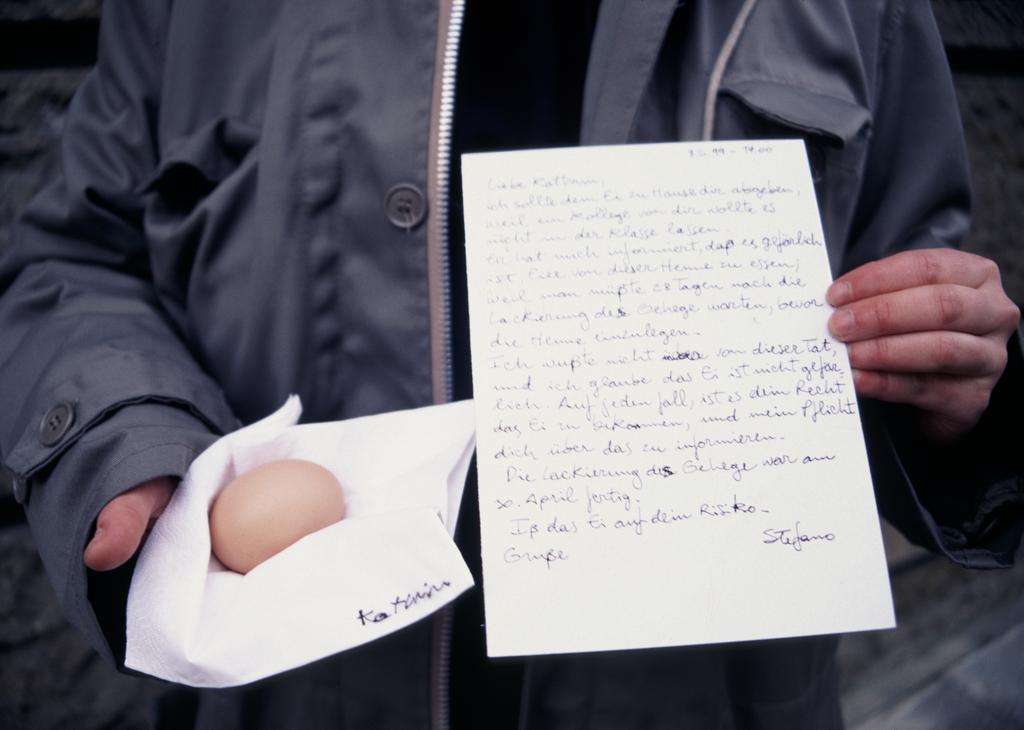 3.5.99 - 14.00
Liebe Kathrin,
ich sollte dein Ei zu Hause dir abgeben,
weil ein Kollege von dir wollte es
nicht in der Klasse lassen.
Er hat mich informiert, daß es gefärlich
ist, Eier von dieser Henne zu essen;
weil man müßte 28 Tagen nach die
Lackierung des Gehege warten, bevor
die Henne einzulegen.
Ich wußte nicht von dieser Tat,
und ich glaube das Ei ist nicht gefär-
lich. Auf jeden fall, ist es dein Recht
das Ei zu bekommen, und mein Pflicht
dich über das zu informieren.
Die Lackierung des Gehege war am
30. April fertig.
Iß das Ei auf dein Risiko.
Gruße
Stefano
Kathrin